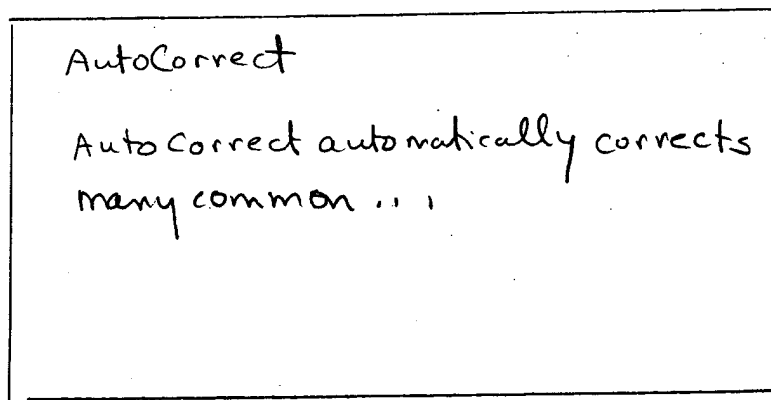 AutoCorrect
AutoCorrect automatically corrects
many common ...